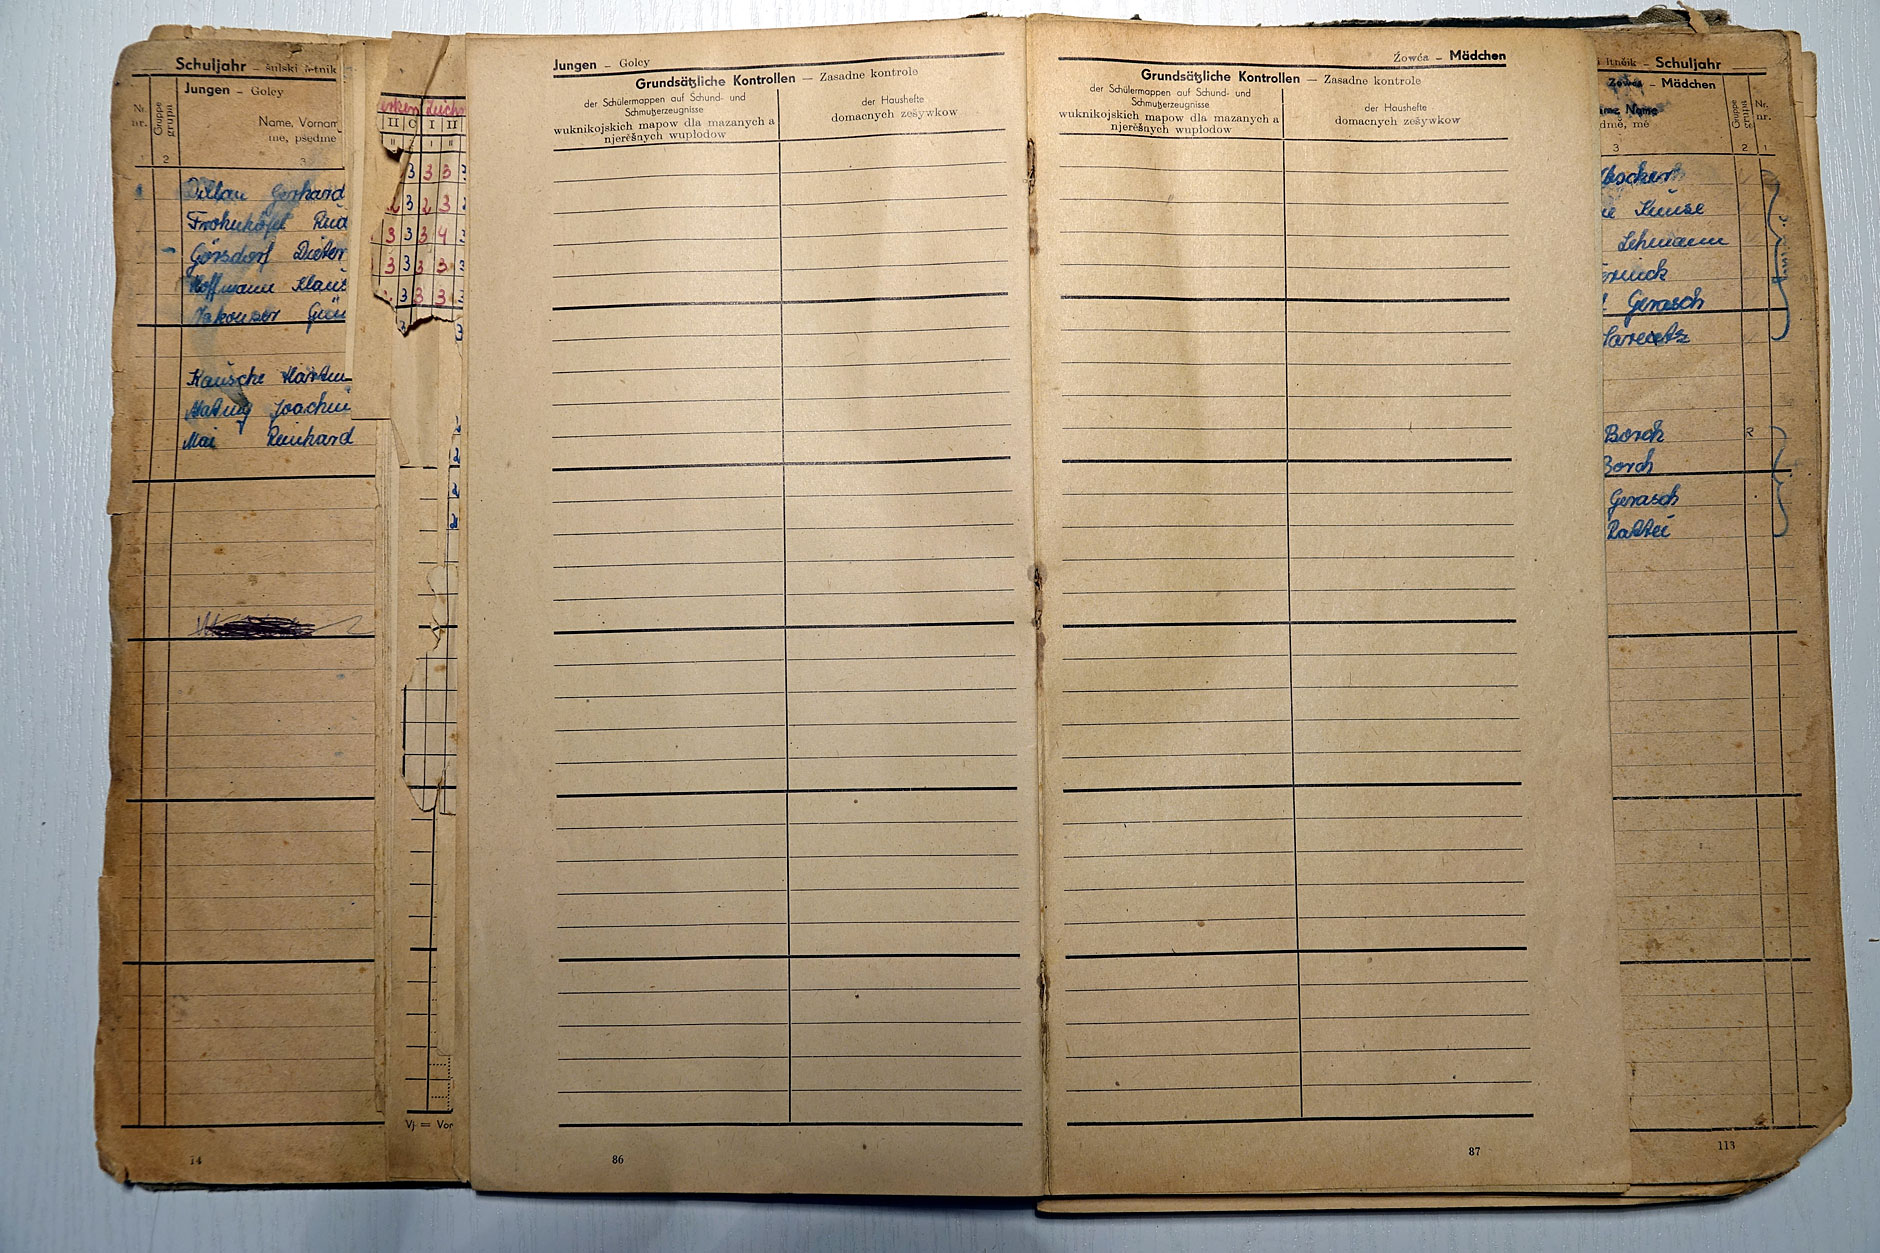 Schuljahr – šulski lětnik
Jungen – Golcy
Nr.
nr.
Gruppe
grupa
Name, Vornam
me, pśedmě
2
3
Gerhard
Görsdorf Dieter
Hoffmann Klaus
Kausche Martin
Joachim
Mai Reinhard
14
II C I II
3 3 3
2 3 2 3
3 3 3 4
3 3 3 3
3 3 3
2
2
2
Vj = Vor
Jungen – Golcy
Grundsätzliche Kontrollen — Zasadne kontrole
der Schülermappen auf Schund- und
Schmutzerzeugnisse
wuknikojskich mapow dla mazanych a
njerěšnych wupłodow
der Haushefte
domacnych zešywkow
86
Źowća – Mädchen
Grundsätzliche Kontrollen — Zasadne kontrole
der Schülermappen auf Schund- und
Schmutzerzeugnisse
wuknikojskich mapow dla mazanych a
njerěšnych wupłodow
der Haushefte
domacnych zešywkow
87
Schuljahr
Źowća – Mädchen
Name
dmě, mě
Gruppe
grupa
Nr.
nr.
3
2
1
Kunse
Lehmann
Gerasch
Borch
R
Borch
Gerasch
Rattei
113